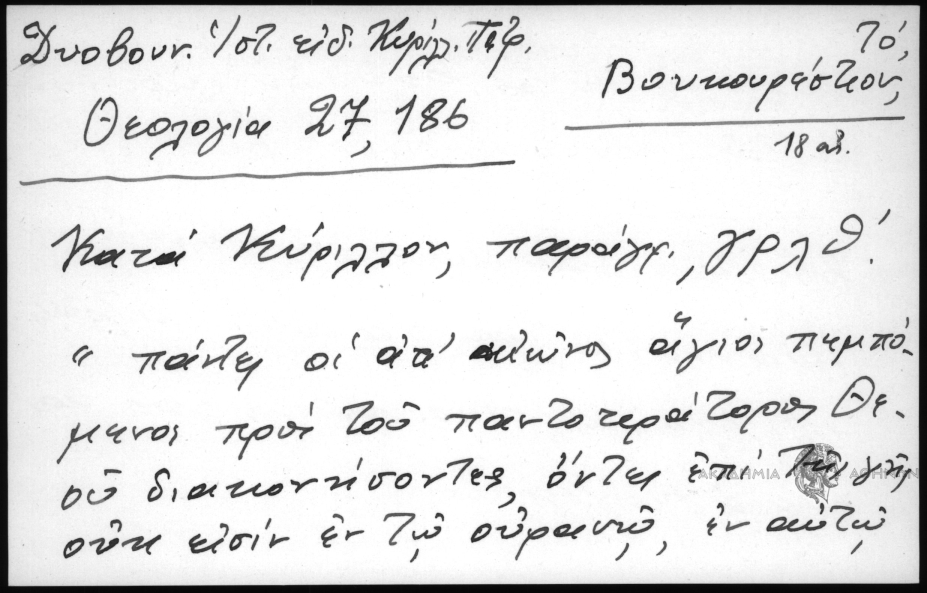 Δυοβουν. Ἱστ. εἰδ. Κύριλλ. Πάτρ.
Τό,
Βουκουρέστιον,
Θεολογία 27, 186
18 αἰ.
Κατά Κύριλλον, παράγρ. ͵γρλθ΄.
" πάντες οἱ ἀπ' αἰῶνος ἅγιοι πεμπό-
μενοι πρός τοῦ παντοκράτορος Θε-
οῦ διακονήσοντες, ὄντες ἐπί τῆς γῆς
οὐκ εἰσίν ἐν τῷ οὐρανῷ, ἐν αὐτῷ
ΑΚΑΔΗΜΙΑ ΑΘΗΝΩΝ